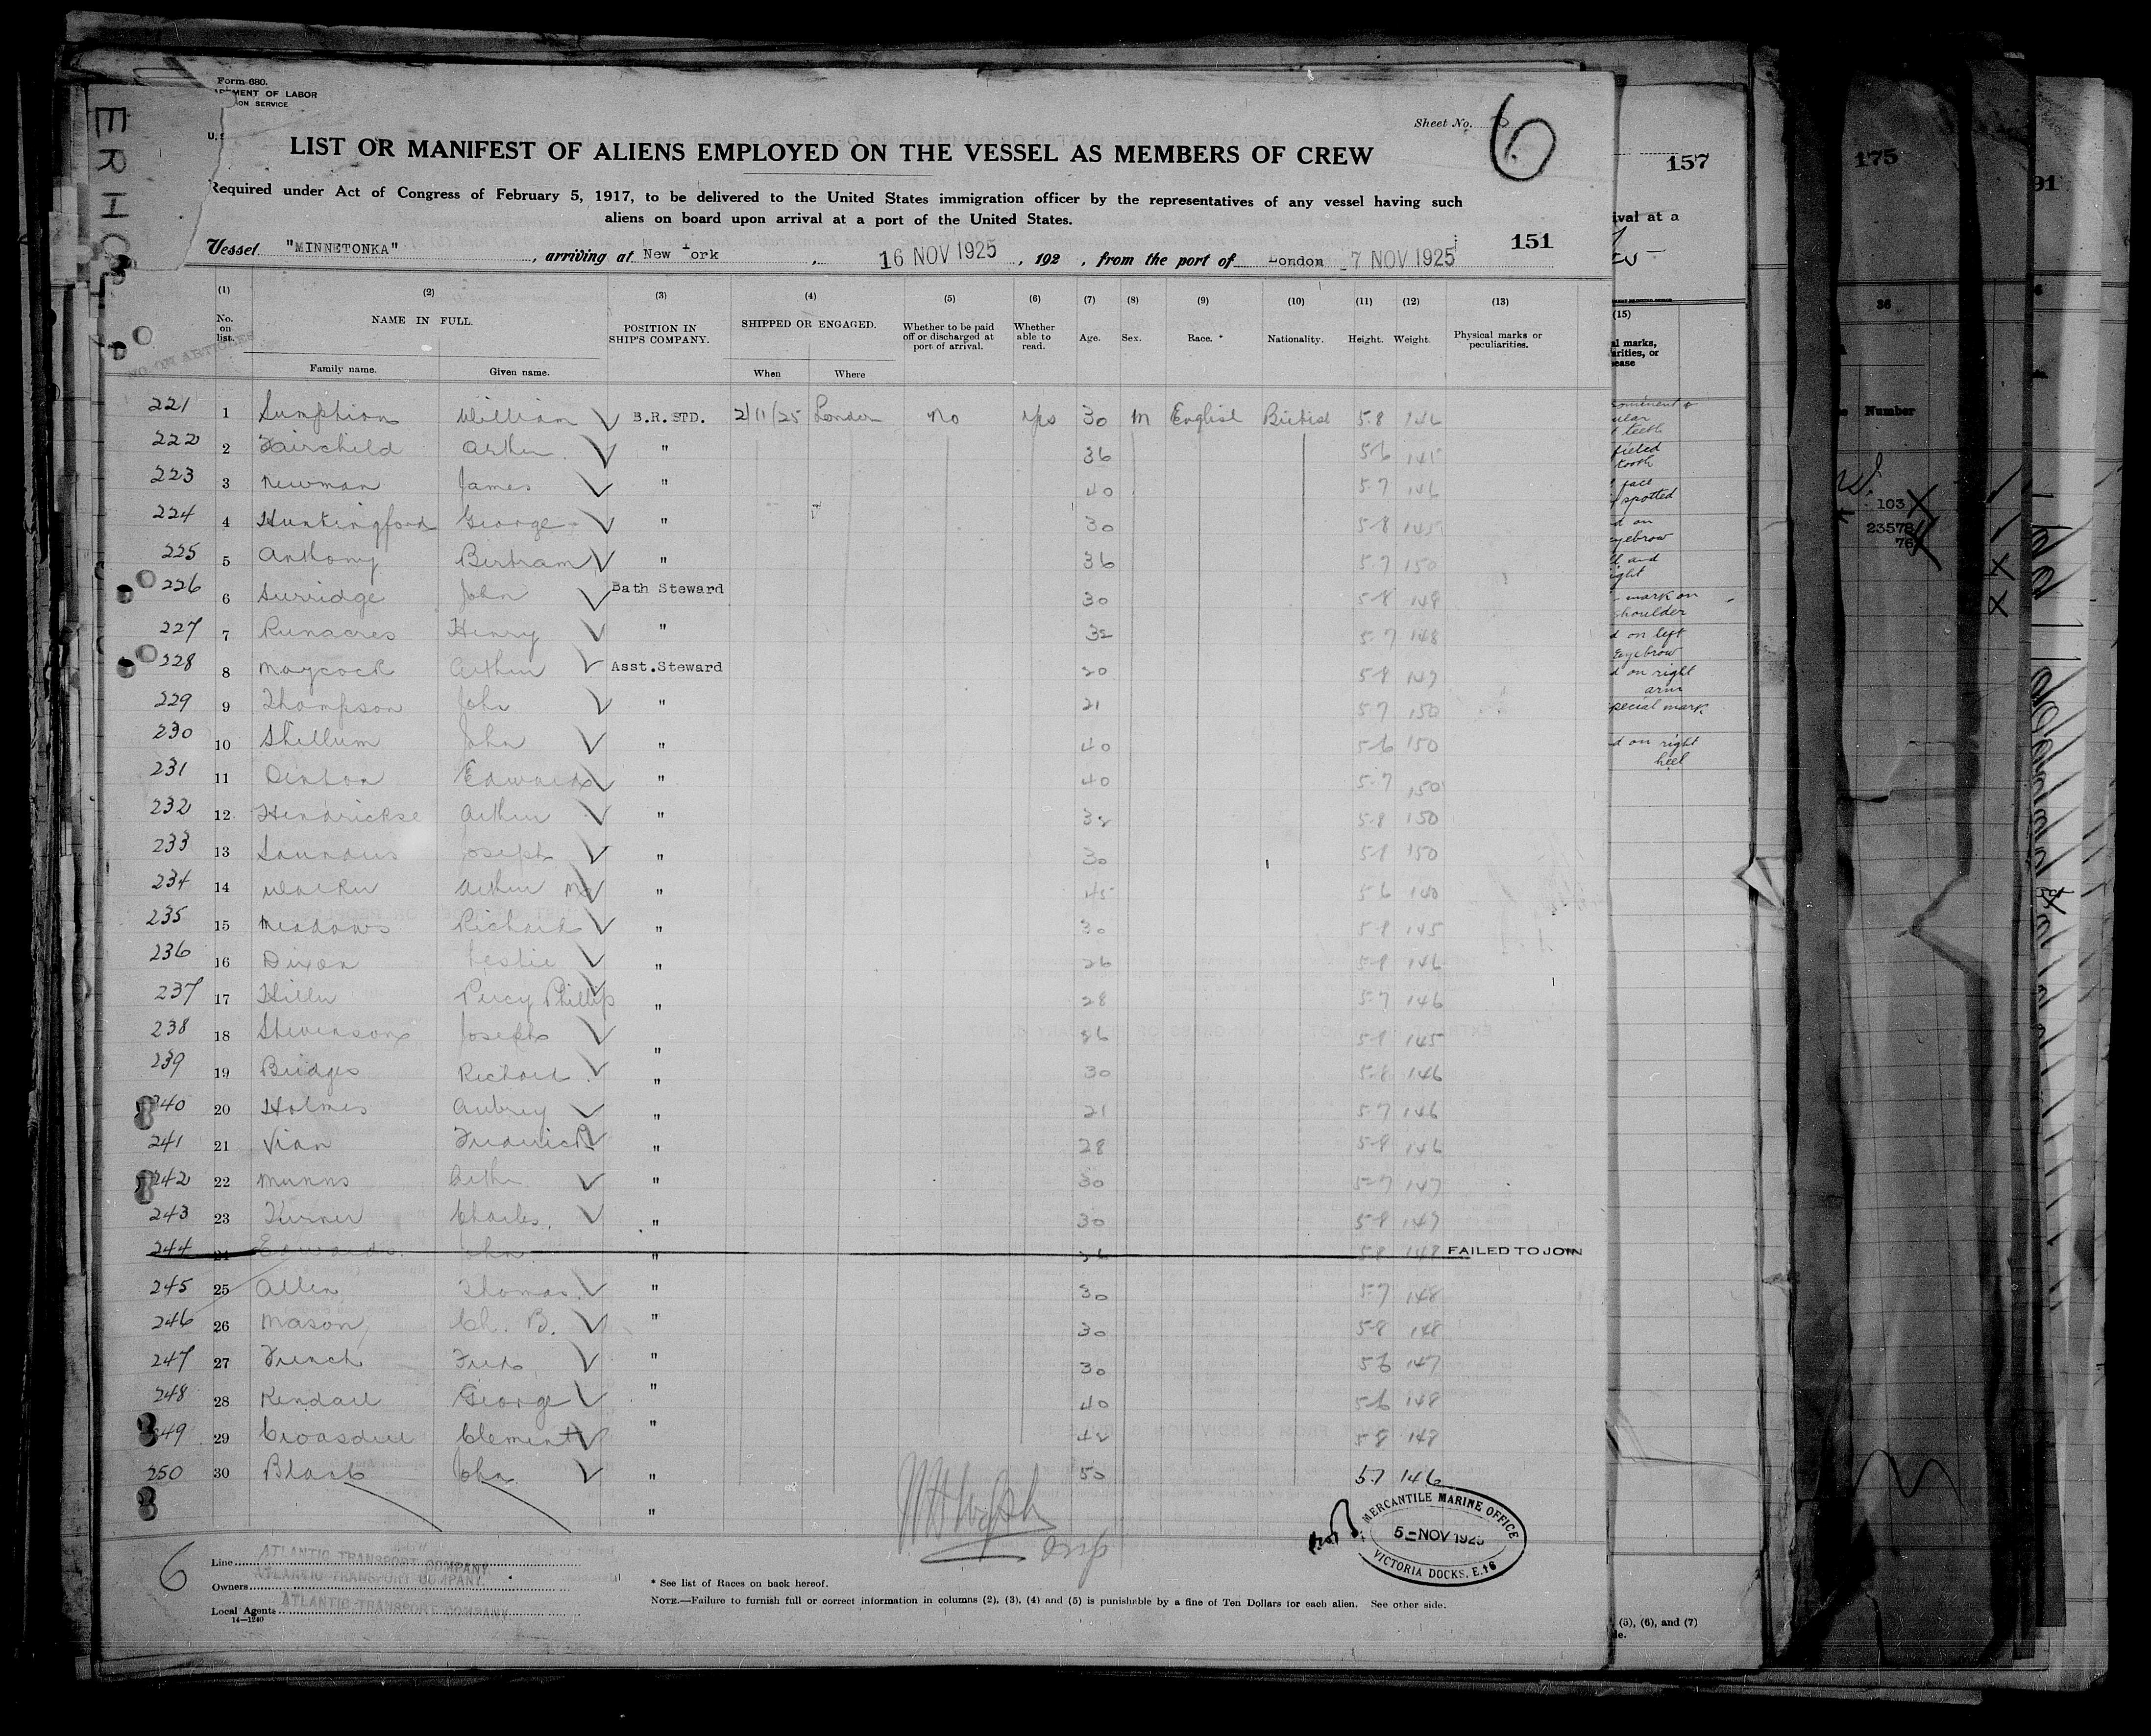 Form 680.
MENT OF LABOR
ION SERVICE
U. S
Sheet No. 6
LIST OR MANIFEST OF ALIENS EMPLOYED ON THE VESSEL AS MEMBERS OF CREW
Required under Act of Congress of February 5, 1917, to be delivered to the United States immigration officer by the representatives of any vessel having such
aliens on board upon arrival at a port of the United States.
151
Vessel "MINNETONKA", arriving at New York, 16 NOV 1925, 192 , from the port of London 7 NOV 1925
(1) (2) (3) (4) (5) (6) (7) (8) (9) (10) (11) (12) (13)
No. on list. NAME IN FULL. POSITION IN SHIP'S COMPANY. SHIPPED OR ENGAGED. Whether to be paid off or discharged at port of arrival. Whether able to read. Age. Sex. Race. * Nationality. Height. Weight. Physical marks or peculiarities.
Family name. Given name. When Where
NO ON ARTICLES
221 1 Sumption William B.R. STD. 2/11/25 London No Yes 30 M English British 5-8 146
222 2 Fairchild Arthur " 36 5-6 145
223 3 Newman James " 40 5-7 146
224 4 Huntingford George " 30 5-8 145
225 5 Anthony Bertram " 36 5-7 150
226 6 Surridge John Bath Steward 30 5-8 149
227 7 Runacres Henry " 32 5-7 148
228 8 Maycock Arthur Asst. Steward 20 5-8 147
229 9 Thompson John " 21 5-7 150
230 10 Shellum John " 40 5-6 150
231 11 Denton Edward " 40 5-7 150
232 12 Hendrickse Arthur " 32 5-8 150
233 13 Saunders Joseph " 30 5-8 150
234 14 Walker Arthur Mc " 45 5-6 140
235 15 Meadows Richard " 30 5-8 145
236 16 Dixon Leslie " 26 5-8 146
237 17 Hiller Percy Phillip " 28 5-7 146
238 18 Stevenson Joseph " 36 5-8 145
239 19 Bridges Richard " 30 5-8 146
240 20 Holmes Aubrey " 21 5-7 146
241 21 Vian Frederick " 28 5-8 146
242 22 Munns Arthur " 30 5-7 147
243 23 Turner Charles. " 30 5-8 147
244 24 Edwards John " 36 5-8 147 FAILED TO JOIN
245 25 Allen Thomas " 30 5-7 148
246 26 Mason Ch. B. " 30 5-8 148
247 27 French Fred " 30 5-6 147
248 28 Kendall George " 40 5-6 148
249 29 Croasdell Clement " 42 5-8 148
250 30 Black John " 50 5-7 146
"
MERCANTILE MARINE OFFICE
5-NOV 1925
VICTORIA DOCKS. E.16
6
Line ATLANTIC TRANSPORT COMPANY.
Owners ATLANTIC TRANSPORT COMPANY.
Local Agents ATLANTIC TRANSPORT COMPANY
14—1240
* See list of Races on back hereof.
NOTE.—Failure to furnish full or correct information in columns (2), (3), (4) and (5) is punishable by a fine of Ten Dollars for each alien. See other side.
157
ival at a
(15)
al marks,
arities, or
ease
teeth
tooth
face
spotted
d on
eyebrow
and
mark on
shoulder
d on left
Eyebrow
d on right
arm
pecial mark
d on right
heel
(5), (6), and (7)
175
36
Number
103
23578
76
91